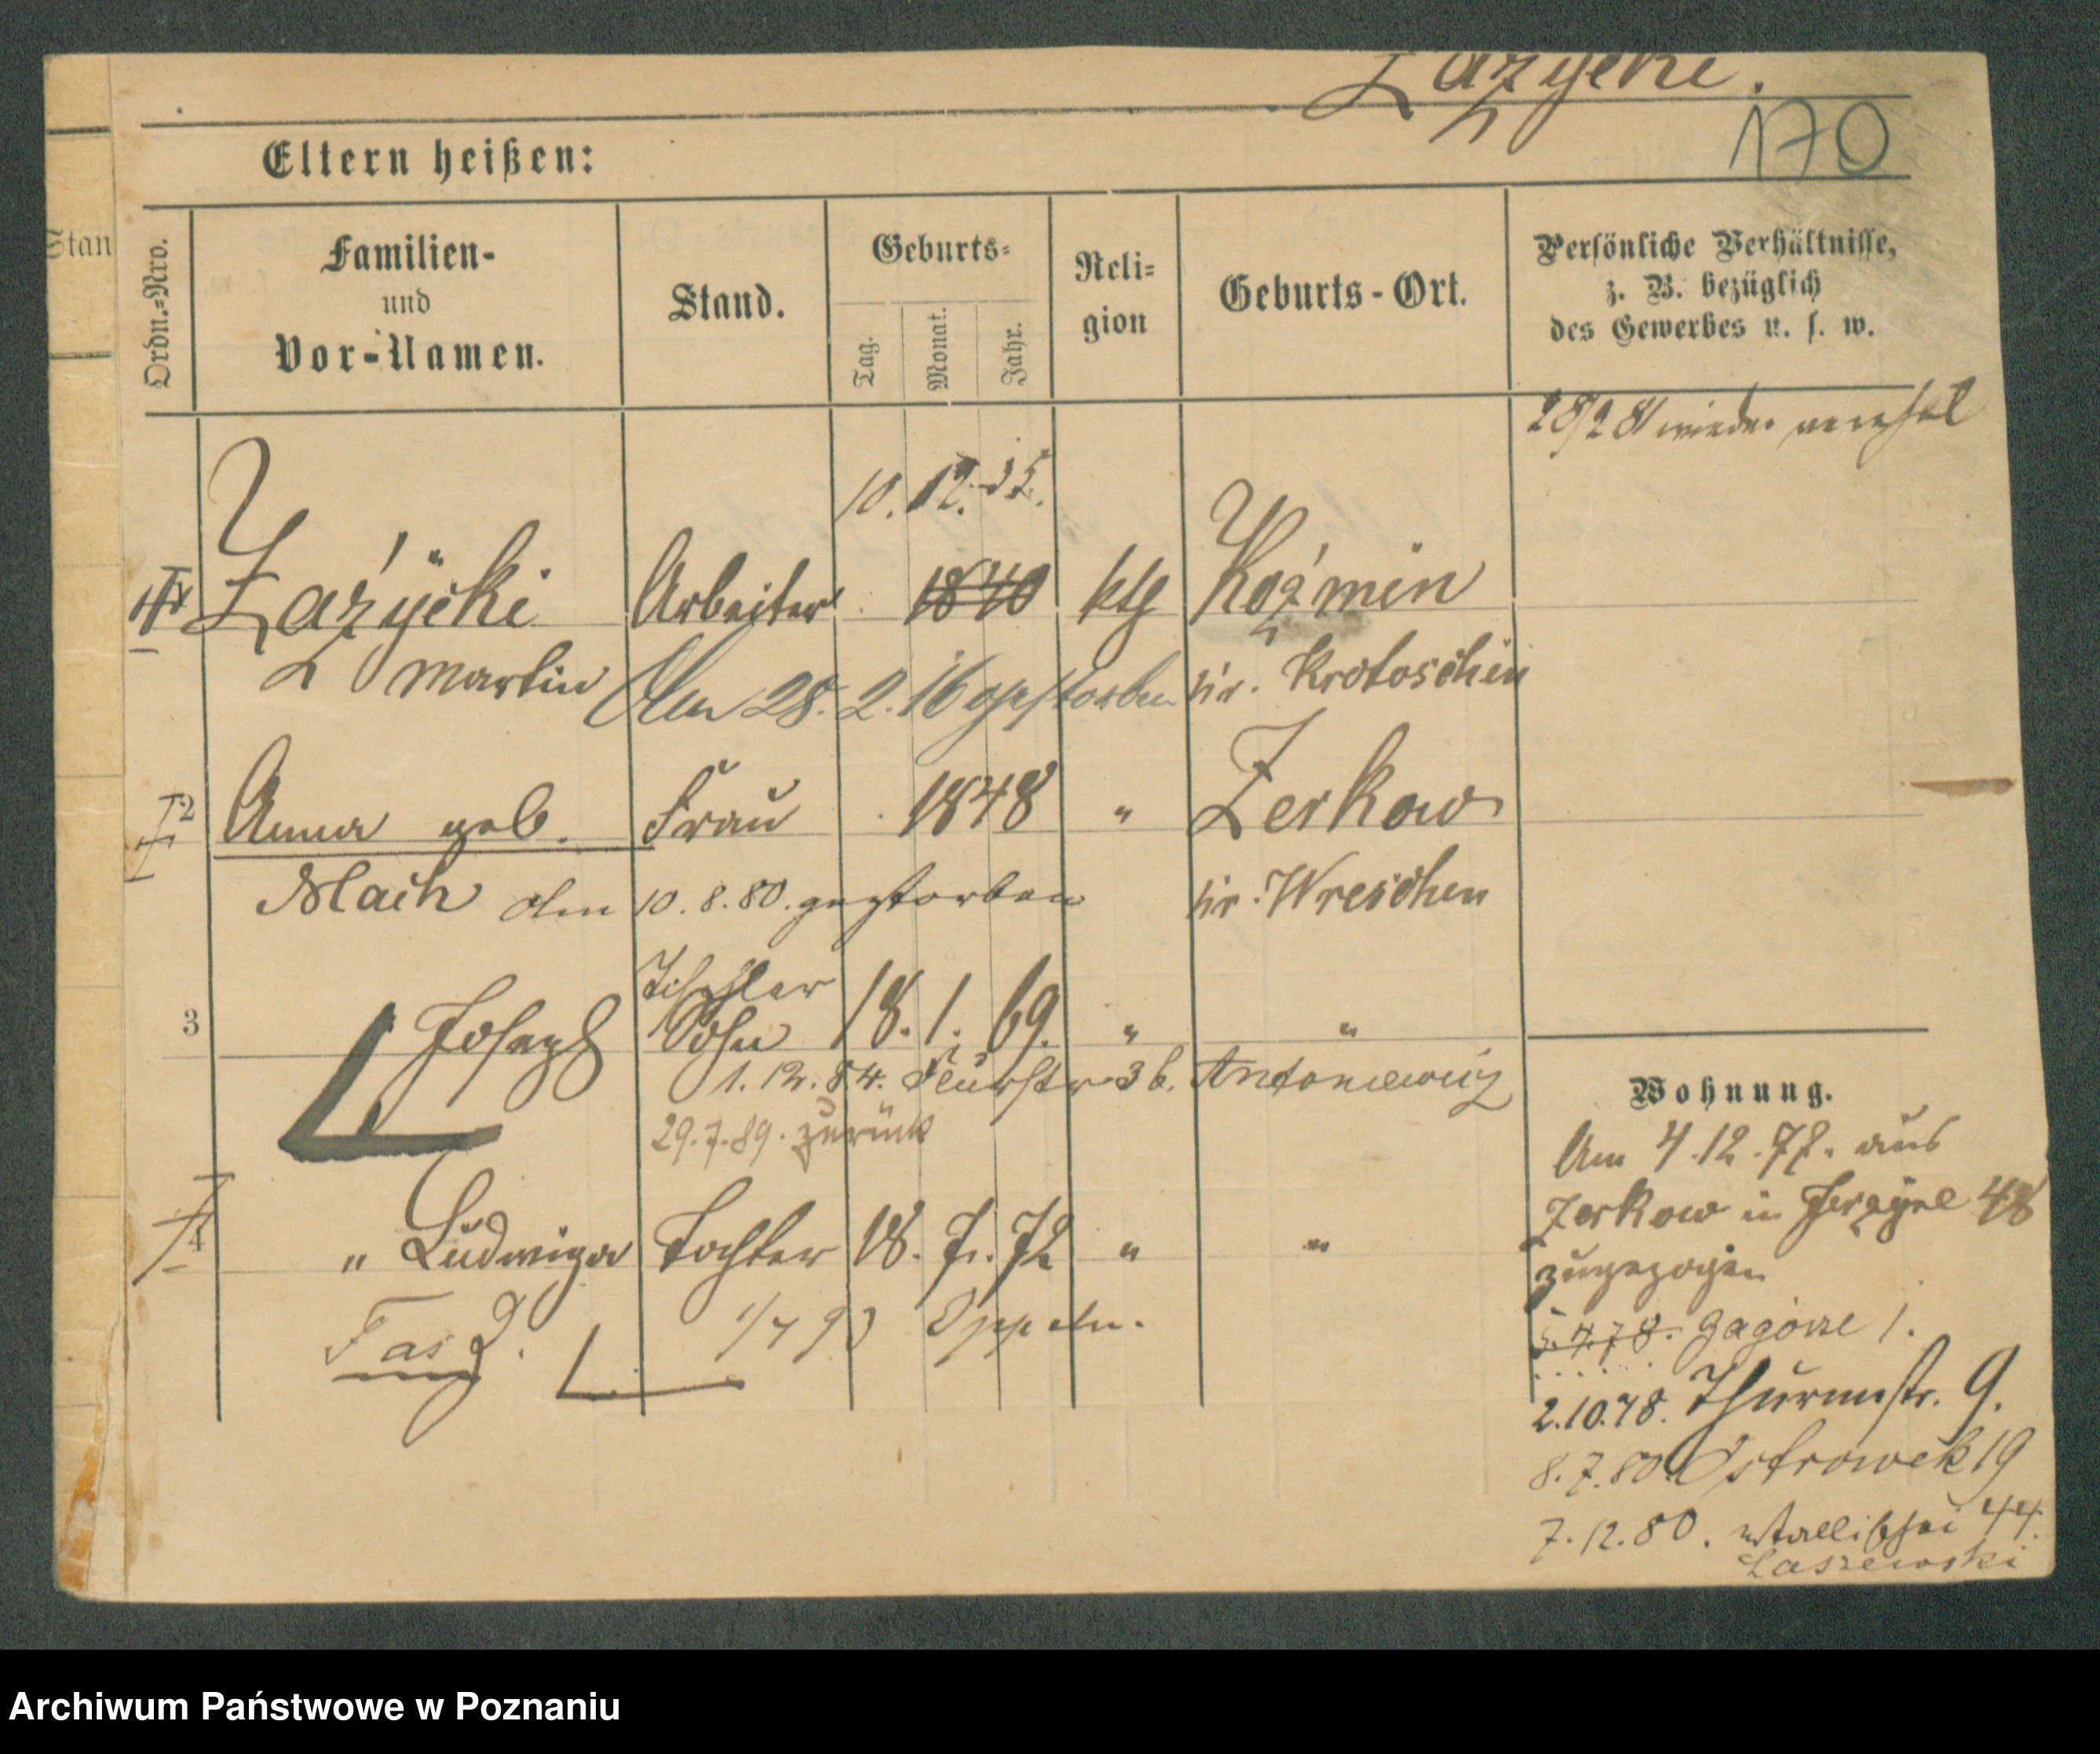 Zażÿcki.
170
Eltern heißen:
Stan
Ordn.=Nro.
Familien-
und
Vor-Namen.
Stand.
Geburts=
Tag.
Monat.
Jahr.
Reli=
gion
Geburts-Ort.
Persönliche Verhältnisse,
z. B. bezüglich
des Gewerbes u. s. w.
28/2 81 wieder
10. 12. 35.
Zażÿcki Arbeiter 1840 ktl Kozmin
Martin Am 28. 2. 16 gestorben Kr. Krotoschin
2 Anna geb. Frau 1848 " Zerkow
Mach Am 10. 8. 80. gestorben Kr. Wreschen
Tischler
3 Joseph Sohn 18. 1. 69. " "
1. 12. 84. 36. Antoniewicz
29. 7. 89. zurück
4 " Ludwiga Tochter 18. 7. 72 " "
1/4 93 Oppeln.
Wohnung.
Am 4. 12. 77. aus
Zerkow in Jerzyce 48
zugezogen
5. 4. 78. Zagórze 1.
2. 10. 78. Thurmstr. 9.
8. 7. 80. Ostrowek 19
7. 12. 80. Wallischei 44.
Laszewski
Archiwum Państwowe w Poznaniu